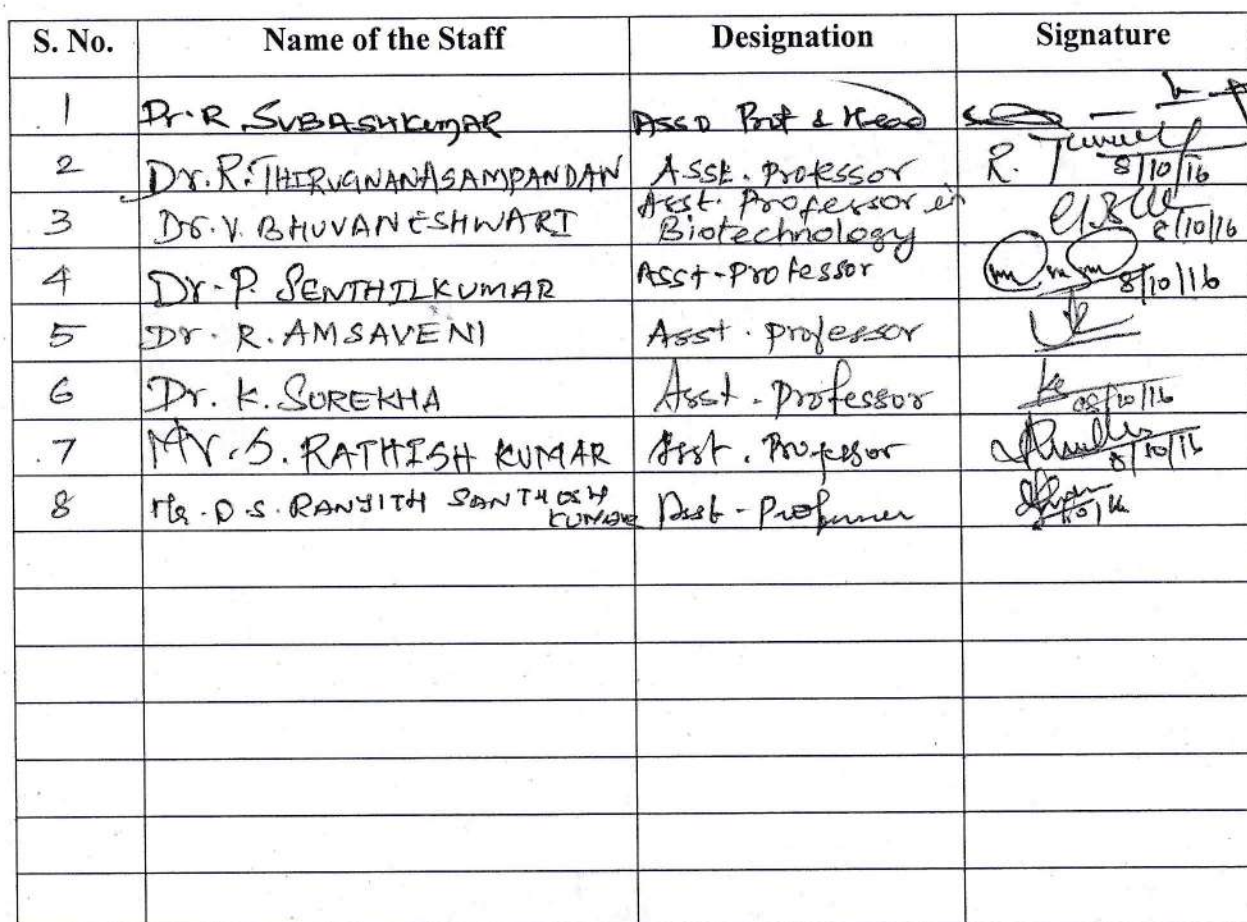 S. No. Name of the Staff Designation Signature
1 Dr. R. SUBASHKUMAR Asso Prof & Head
2 Dr. R. THIRUGNANASAMPANDAN Asst. Professor R. 8/10/16
3 Dr. V. BHUVANESHWARI Asst. Professor in
Biotechnology 8/10/16
4 Dr. P. SENTHILKUMAR Asst-Professor 8/10/16
5 Dr. R. AMSAVENI Asst. Professor
6 Dr. K. SUREKHA Asst. Professor 08/10/16
7 Mr. S. RATHISH KUMAR Asst. Professor 8/10/16
8 Mr. D.S. RANJITH SANTHOSH
KUMAR Asst-Professor